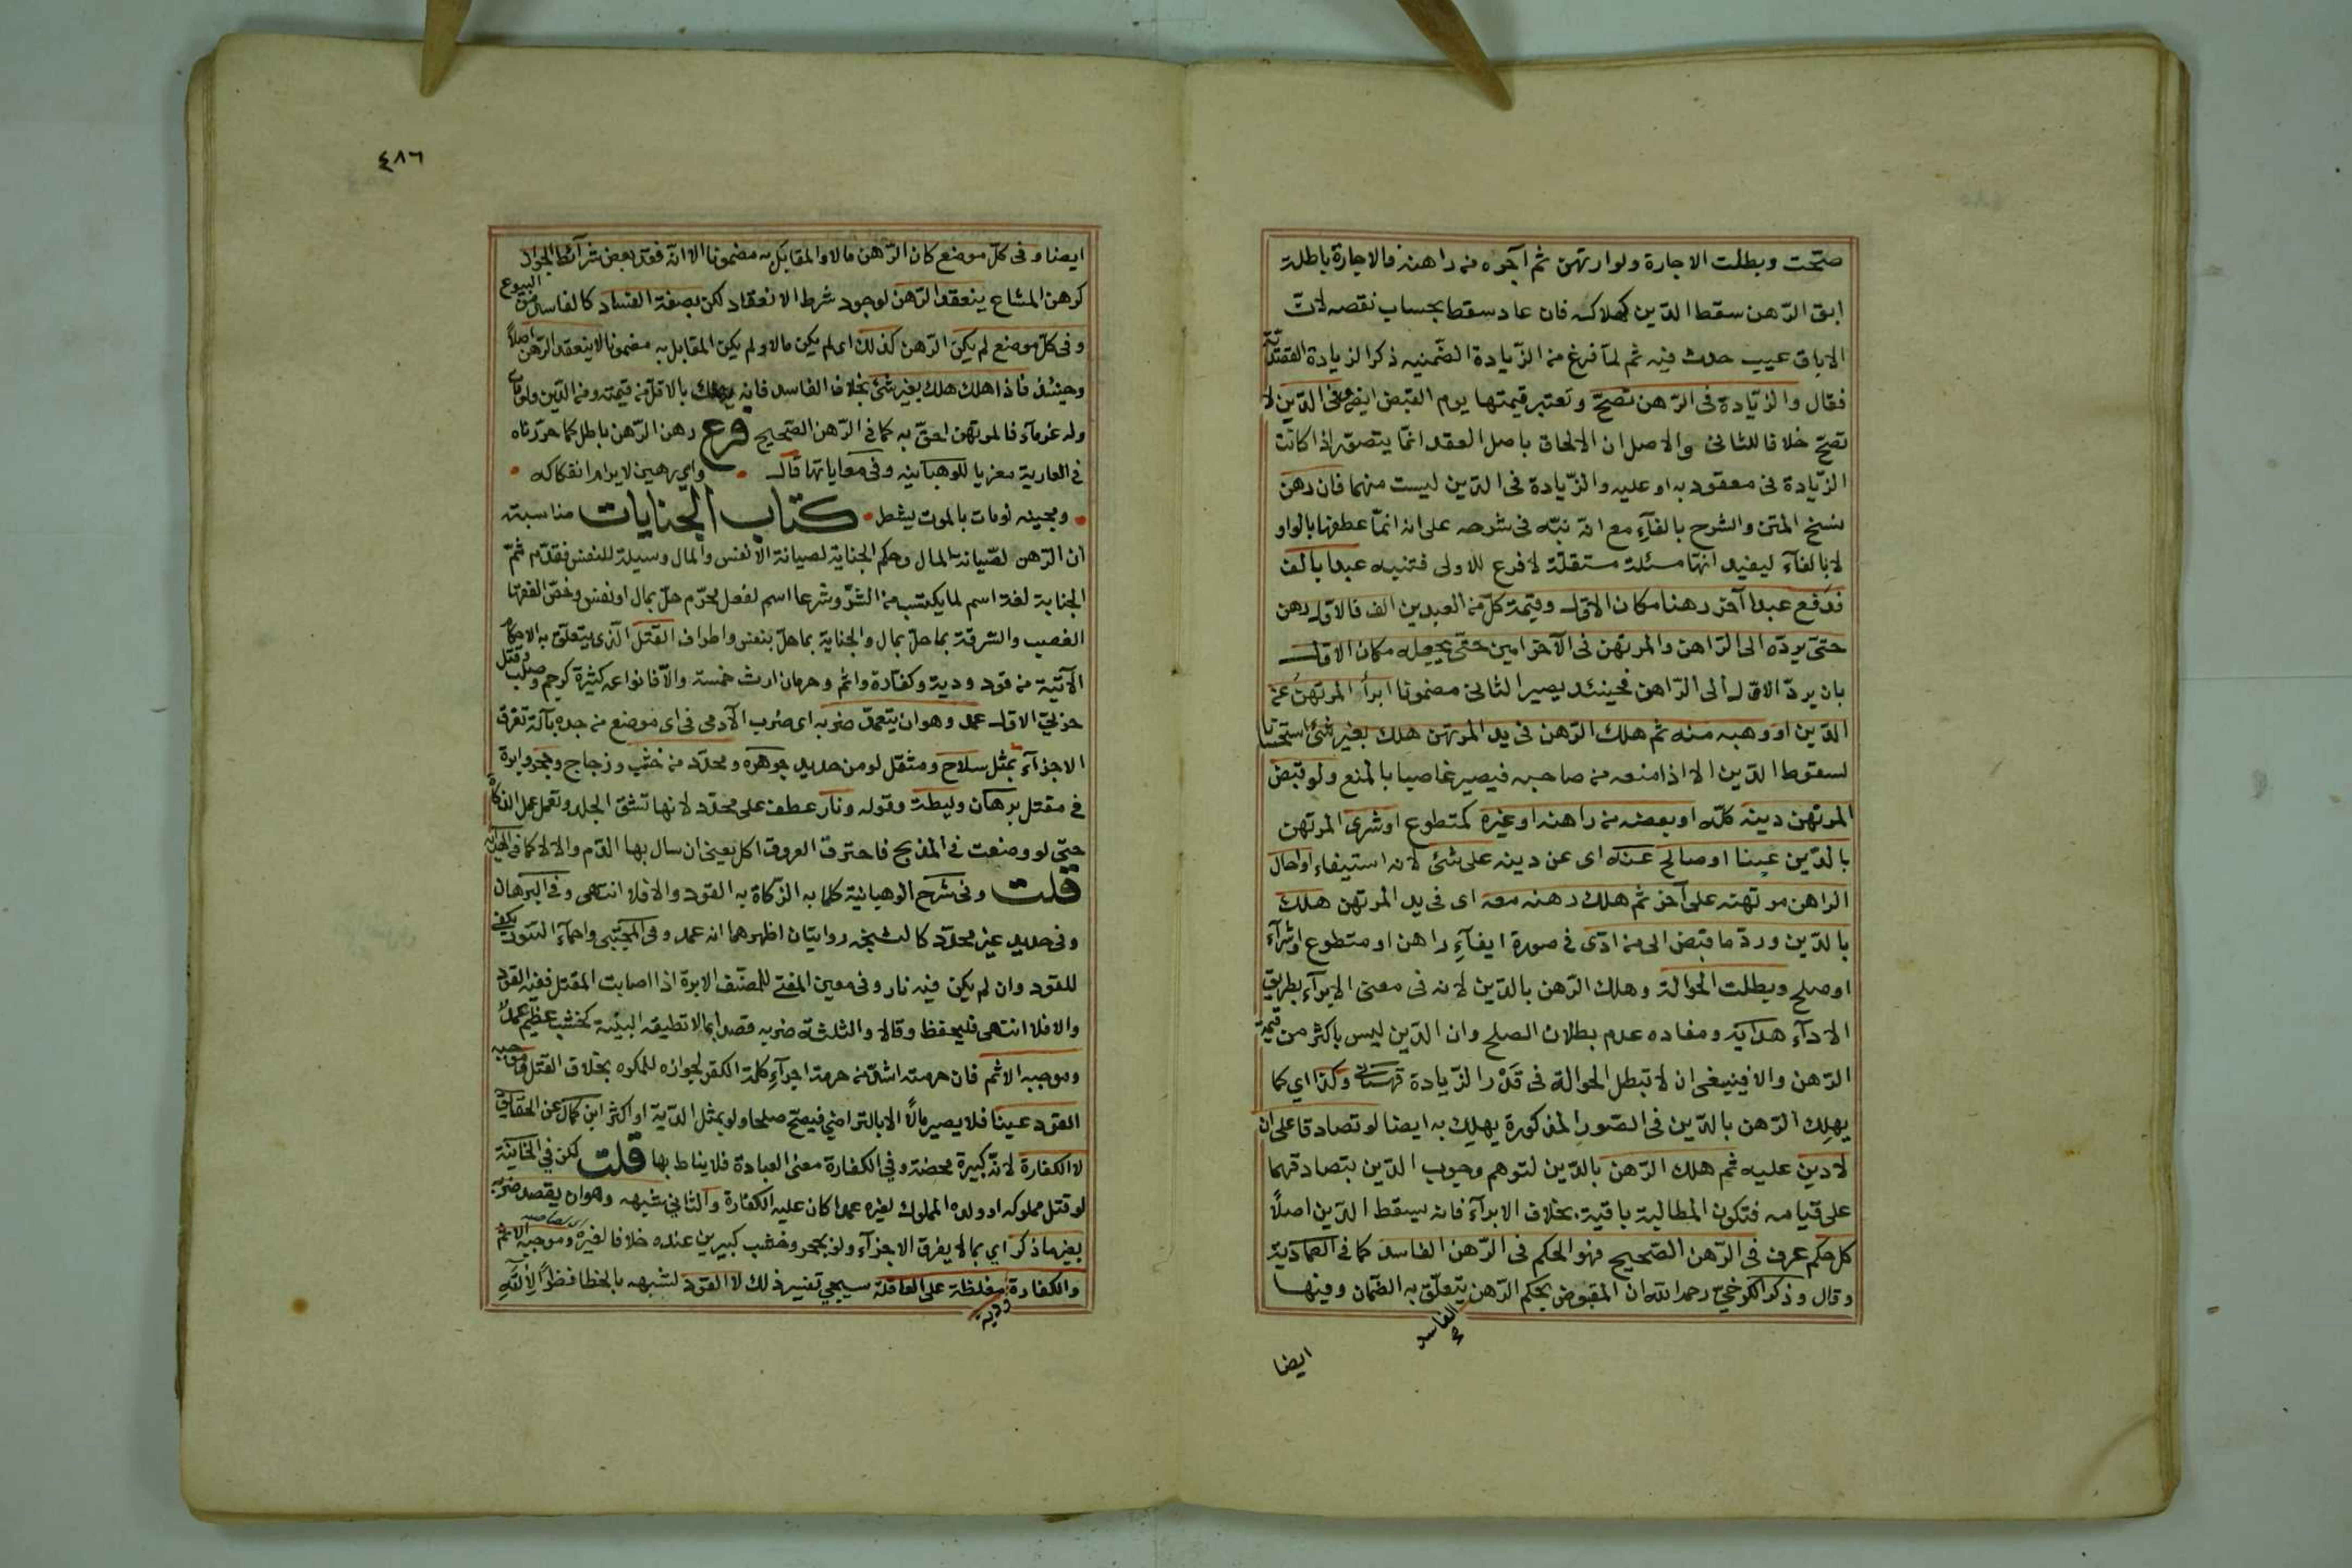 صحت وبطلت الاجارة ولو ارتهن ثم آجره من راهنه فالاجارة باطلة
ابق الرهن سقط الدين كهلاكه فان عاد سقط بحساب نقصه لان
الاباق عيب حدث فيه ثم لما فرغ من الزيادة الضمنيه ذكر الزيادة القصدية
فقال والزيادة فى الرهن تصح وتعتبر قيمتها يوم القبض ايضا وفى الدين لا
تصح خلافا للثانى والاصل ان الالحاق باصل العقد انما يتصور اذا كانت
الزيادة فى معقود به او عليه والزيادة فى الدين ليست منهما فان رهن
نسخ المتن والشرح بالفآء مع انه نبّه فى شرحه على انه انما عطفها بالواو
لا بالفآء ليفيد انها مسئلة مستقلة لا فرع للاولى فتنبه عبدا بالف
فدفع عبدا آخر رهنا مكان الاول وقيمة كل من العبدين الف فالاول رهن
حتى يرده الى الراهن والمرتهن فى الآخر امين حتى يجعله مكان الاول
بان يرد الاول الى الراهن فحينئذ يصير الثانى مضمونا ابرأ المرتهن عن
الدين او وهبه منه ثم هلك الرهن فى يد المرتهن هلك بغير شئ استحسانا
لسقوط الدين الا اذا منعه من صاحبه فيصير غاصبا بالمنع ولو قبض
المرتهن دينه كله او بعضه من راهنه او غيره كمتطوع او شرى المرتهن
بالدين عينا او صالح عنه اى عن دينه على شئ لانه استيفاء او احال
الراهن مرتهنه على آخر ثم هلك رهنه معه اى فى يد المرتهن هلك
بالدين ورد ما قبض الى من ادى فى صورة ايفآء راهن او متطوع او شرآء
او صلح وبطلت الحوالة وهلك الرهن بالدين لانه فى معنى الابرآء بطريق
الادآء هداية ومفاده عدم بطلان الصلح وان الدين ليس باكثر من قيمة
الرهن والا فينبغى ان لا تبطل الحوالة فى قدر الزيادة قهستانى وكذا اي كما
يهلك الرهن بالدين فى الصور المذكورة يهلك به ايضا لو تصادقا على ان
لا دين عليه ثم هلك الرهن بالدين لتوهم وجوب الدين بتصادقهما
على قيامه فتكون المطالبة باقية بخلاف الابرآء فانه يسقط الدين اصلاً
كل حكم عرف فى الرهن الصحيح فهو الحكم فى الرهن الفاسد كما فى العمادية
وقال وذكر الكرخي رحمه الله ان المقبوض بحكم الرهن يتعلق به الضمان وفيها
الفاسد صح
ايضا
٤٨٦
ايضا وفى كل موضع كان الرهن مالا والمقابل به مضمونا الا انه فقد بعض شرآئط الجواز
كرهن المشاع ينعقد الرهن لوجود شرط الانعقاد لكن بصفة الفساد كالفاسد من البيوع
وفى كل موضع لم يكن الرهن كذلك اى لم يكن مالا ولم يكن المقابل به مضمونا لا ينعقد الرهن اصلاً
وحينئذ فاذا هلك هلك بغير شئ بخلاف الفاسد فانه يهلك بالاقل من قيمته ومن الدين ولو مات
وله غرمآء فالمرتهن احق به كما فى الرهن الصحيح فرع رهن الرهن باطل كما حررناه
في العارية معزيا للوهبانيه وفى معاياتها قال • واي رهين لا يرام انفكاكه •
• ومحييه لو مات بالموت يشطر • كتاب الجنايات مناسبته
ان الرهن لصيانة المال وحكم الجناية لصيانة الانفس والمال وسيلة للنفس فقدم ثم
الجناية لغة اسم لما يكتسب من الشر وشرعا اسم لفعل محرم حل بمال او نفس وخص الفقها
الغصب والسرقة بما حل بمال والجناية بما حل بنفس واطراف القتل الذى يتعلق به الاحكام
الآتية من قود ودية وكفارة واثم وحرمان ارث خمسة والا فانواعه كثيرة كرجم وصلب وقتل
حربي الاول عمد وهو ان يتعمد ضربه اى ضرب الآدمى فى اى موضع من جده بآلة تفرق
الاجزآء بمثل سلاح ومثقل لو من حديد جوهره ومحدد من خشب وزجاج وحجر وابرة
في مقتل برهان وليطة وقوله ونار عطف على محدد لانها تشق الجلد وتعمل عمل الذكاة
حتى لو وضعت في المذبح فاحترق العروق اكل يعني ان سال بها الدم والا لا كما في الكفاية
قلت وفى شرح الوهبانية كلما به الزكاة به القود والا فلا انتهى وفى البرهان
وفى حديد غير محدد كالسنجه روايتان اظهرهما انه عمد وفى المجتبى واحمآء التنور يكفي
للقود وان لم يكن فيه نار وفى معين المفتي للمصنف الابرة اذا اصابت المقتل ففيه القود
والا فلا انتهى فليحفظ وقالا والثلثة ضربه قصدا بما لا تطيقه البنية كخشب عظيم عمد
وموجبه الاثم فان حرمته اشد من حرمة اجرآء كلمة الكفر لجوازه للمكره بخلاف القتل وموجبه
القود عينا فلا يصير مالاً الا بالتراضي فيصح صلحا ولو بمثل الدية او اكثر ابن كمال عن الحقايق
لا الكفارة لانه كبيرة محضة وفي الكفارة معنى العبادة فلا يناط بها قلت لكن في الخانية
لو قتل مملوكه او ولده المملوك لغيره عمدا كان عليه الكفارة والثاني شبهه وهو ان يقصد ضربه
بغير ما ذكر اي بما لا يفرق الاجزآء ولو بحجر وخشب كبيرين عنده خلافا لغيره وموجبه الاثم
والكفارة ودية مغلظة على العاقلة سيجي تفسير ذلك لا القود لشبهه بالخطا نظرا لآلته